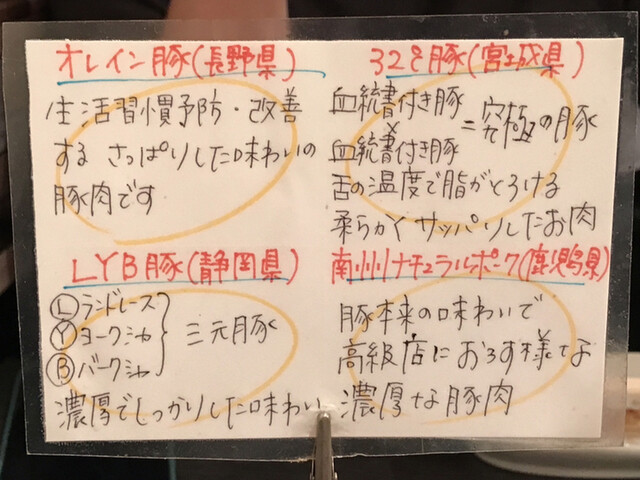 オレイン豚(長野県)
生活習慣予防・改善
する さっぱりした味わいの
豚肉です
32℃豚(宮城県)
血統書付き豚
×
血統書付き豚
=究極の豚
舌の温度で脂がとろける
柔らかくサッパリしたお肉
LYB豚(静岡県)
Ⓛランドレース
Ⓨヨークシャ
Ⓑバークシャ
三元豚
濃厚でしっかりした味わい
南州ナチュラルポーク(鹿児島県)
豚本来の味わいで
高級店におろす様な
濃厚な豚肉